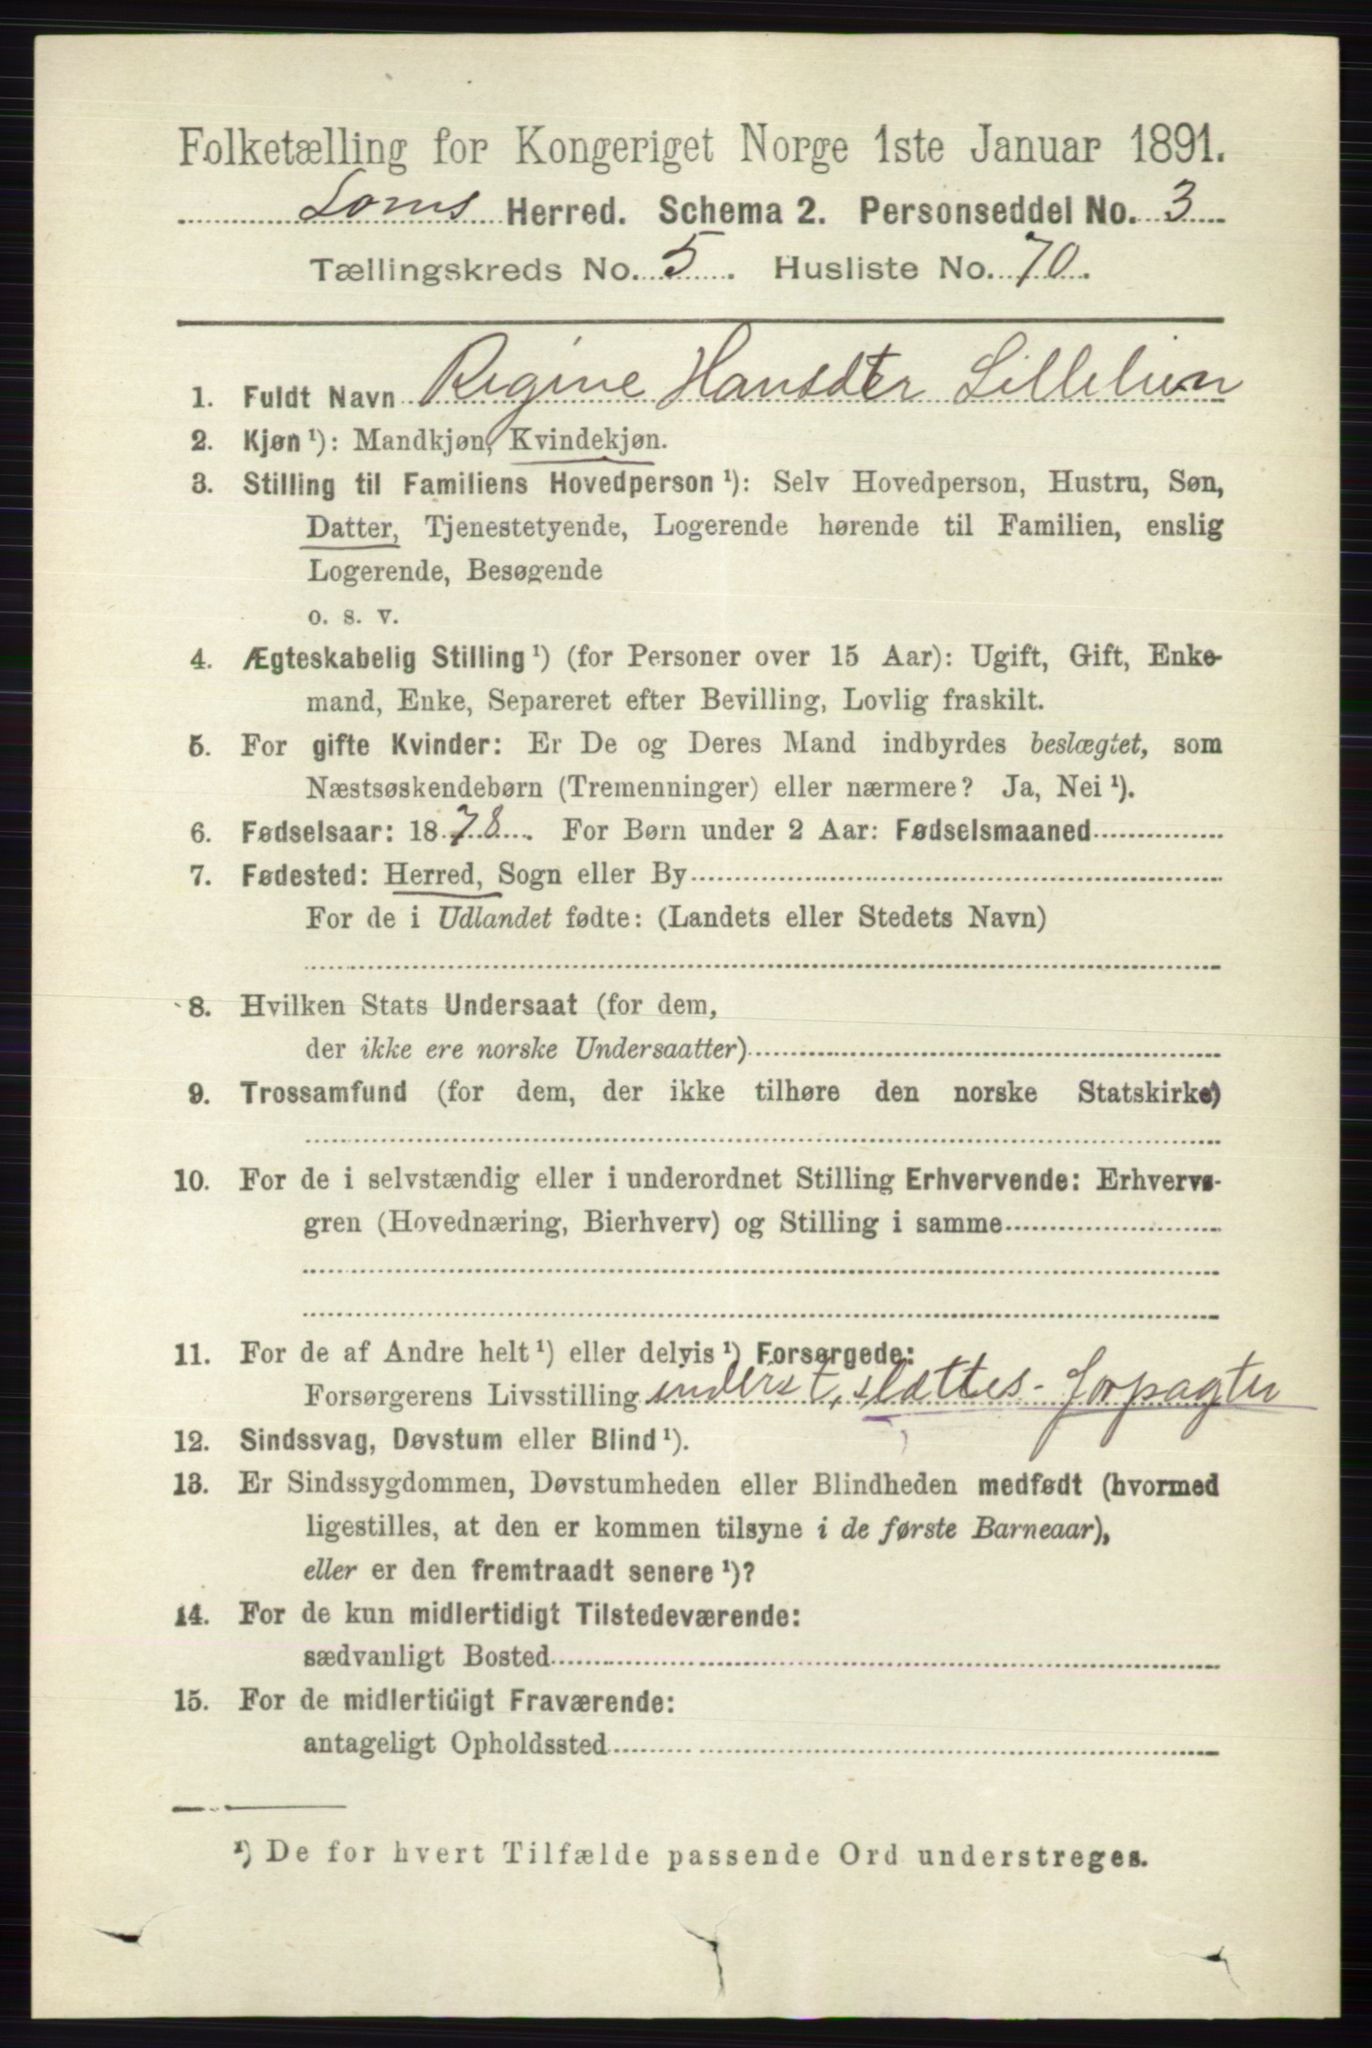 Folketælling for Kongeriget Norge 1ste Januar 1891.
Loms Herred. Schema 2. Personseddel No. 3
Tællingskreds No. 5. Husliste No. 70.
1. Fuldt Navn Regine Hansdtr Lillelien
2. Kjøn ¹): Mandkjøn, Kvindekjøn.
3. Stilling til Familiens Hovedperson ¹): Selv Hovedperson, Hustru, Søn,
Datter, Tjenestetyende, Logerende hørende til Familien, enslig
Logerende, Besøgende
o. s. v.
4. Ægteskabelig Stilling ¹) (for Personer over 15 Aar): Ugift, Gift, Enke-
mand, Enke, Separeret efter Bevilling, Lovlig fraskilt.
5. For gifte Kvinder: Er De og Deres Mand indbyrdes beslægtet, som
Næstsøskendebørn (Tremenninger) eller nærmere? Ja, Nei ¹).
6. Fødselsaar: 1878. For Børn under 2 Aar: Fødselsmaaned
7. Fødested: Herred, Sogn eller By
For de i Udlandet fødte: (Landets eller Stedets Navn)
8. Hvilken Stats Undersaat (for dem,
der ikke ere norske Undersaatter)
9. Trossamfund (for dem, der ikke tilhøre den norske Statskirke)
10. For de i selvstændig eller i underordnet Stilling Erhvervende: Erhvervs-
gren (Hovednæring, Bierhverv) og Stilling i samme
11. For de af Andre helt ¹) eller delvis ¹) Forsørgede:
Forsørgerens Livsstilling inderst, slættes-forpagter
12. Sindssvag, Døvstum eller Blind ¹).
13. Er Sindssygdommen, Døvstumheden eller Blindheden medfødt (hvormed
ligestilles, at den er kommen tilsyne i de første Barneaar),
eller er den fremtraadt senere ¹)?
14. For de kun midlertidigt Tilstedeværende:
sædvanligt Bosted
15. For de midlertidigt Fraværende:
antageligt Opholdssted
¹) De for hvert Tilfælde passende Ord understreges.